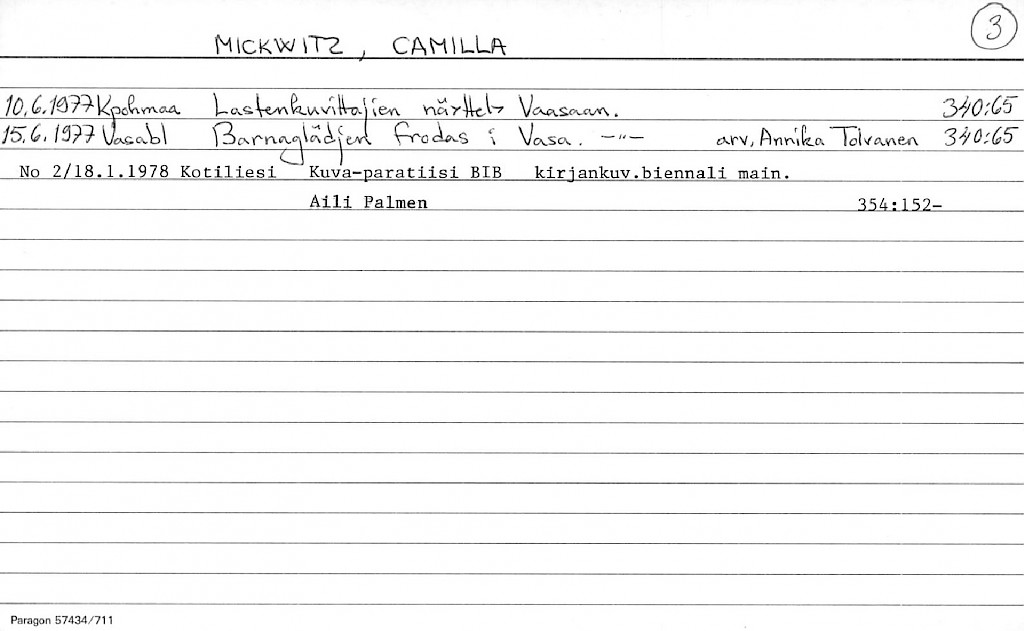 3
MICKWITZ, CAMILLA
10.6.1977 Kpohmaa Lastenkuvittajien näyttely Vaasaan. 340:65
15.6.1977 Vasabl Barnaglädjen frodas i Vasa. —"— arv, Annika Tolvanen 340:65
No 2/18.1.1978 Kotiliesi Kuva-paratiisi BIB kirjankuv.biennali main.
Aili Palmen 354:152-
Paragon 57434/711